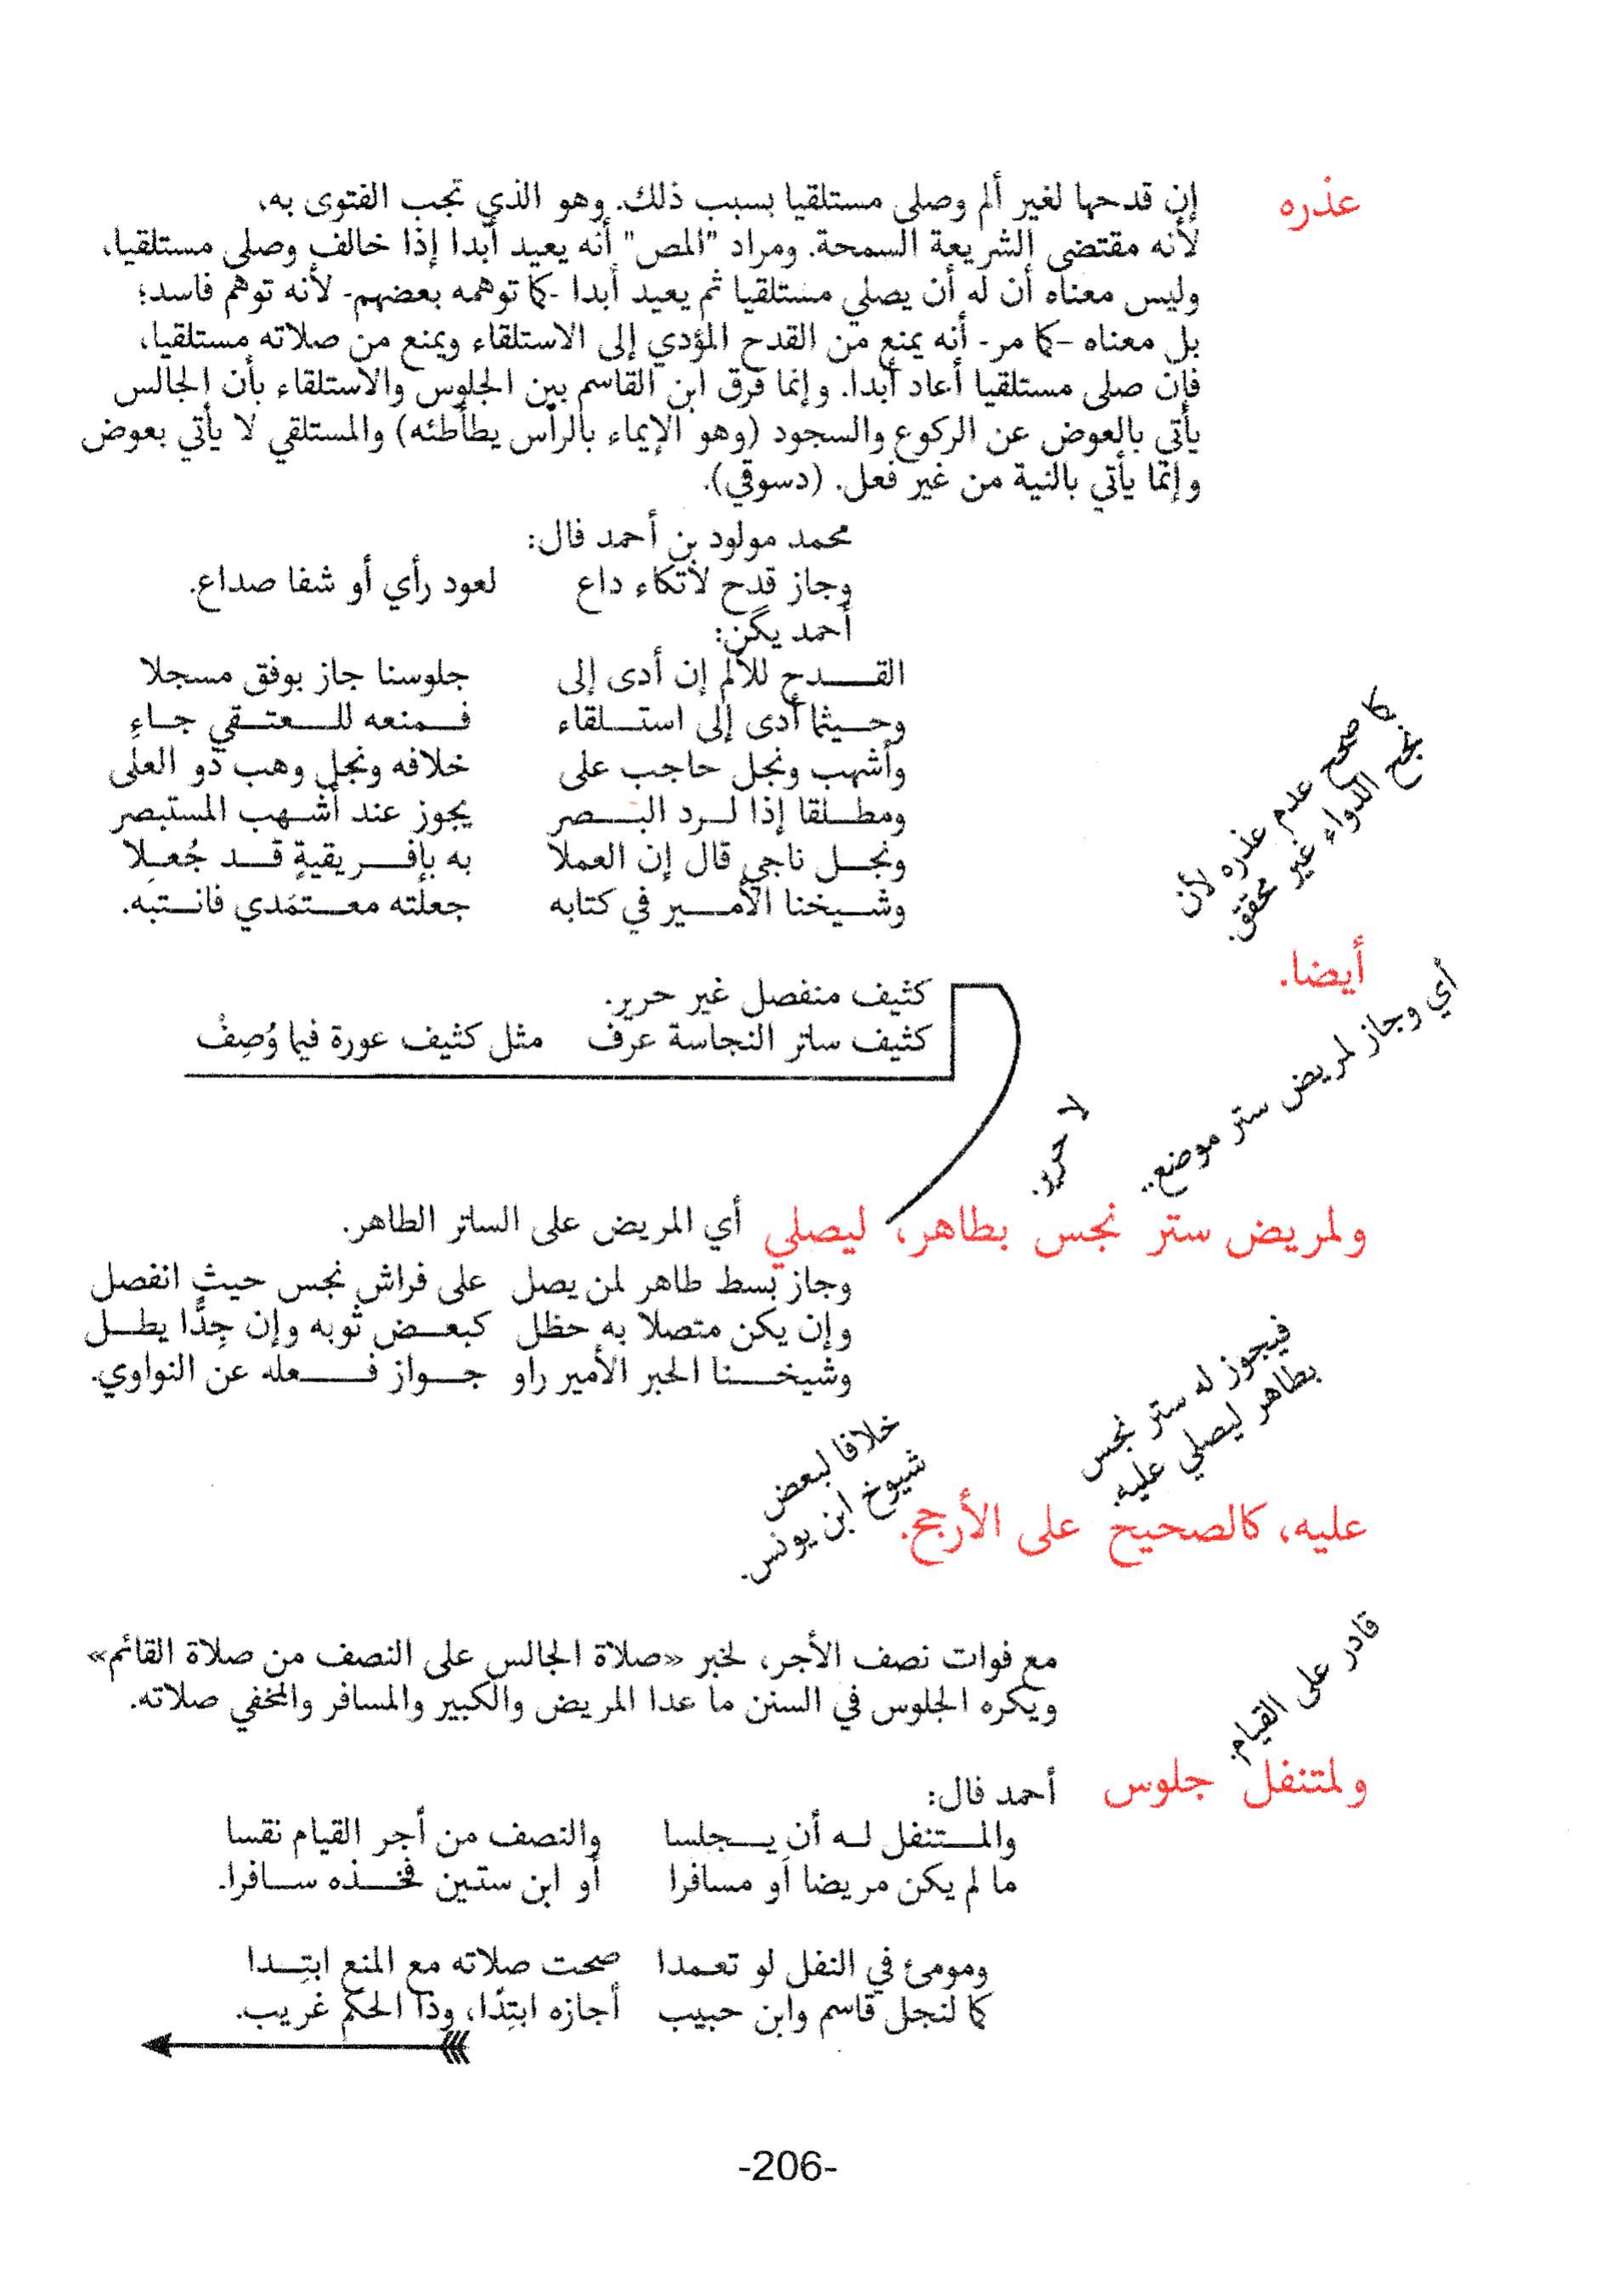 عذره إن قدحها لغير ألم وصلى مستلقيا بسبب ذلك. وهو الذي تجب الفتوى به،
لأنه مقتضى الشريعة السمحة. ومراد "المص" أنه يعيد أبدا إذا خالف وصلى مستلقيا،
وليس معناه أن له أن يصلي مستلقيا ثم يعيد أبدا -كما توهمه بعضهم- لأنه توهم فاسد؛
بل معناه -كما مر- أنه يمنع من القدح المؤدي إلى الاستلقاء ويمنع من صلاته مستلقيا،
فإن صلى مستلقيا أعاد أبدا. وإنما فرق ابن القاسم بين الجلوس والاستلقاء بأن الجالس
يأتي بالعوض عن الركوع والسجود (وهو الإيماء بالرأس يطأطئه) والمستلقي لا يأتي بعوض
وإنما يأتي بالنية من غير فعل. (دسوقي).
محمد مولود بن أحمد فال:
وجاز قدح لاتكاء داع لعود رأي أو شفا صداع.
أحمد يگن:
القــــدح للألم إن أدى إلى جلوسنا جاز بوفق مسجلا
وحــيثما أدى إلى استــلقاء فــمنعه للــعتــقي جــاءِ
وأشهب ونجل حاجب على خلافه ونجل وهب ذو العلى
ومطــلقا إذا لــرد البــــصر يجوز عند أشــهب المستبصر
ونجــل ناجي قال إن العملا به بإفــريقيةٍ قــد جُعــلا
وشــيخنا الأمــــير في كتابه جعلته معــتمَدي فانــتبه.
كما صحح عدم عذره لأن
نجح الدواء غير محقق.
أيضا.
كثيف منفصل غير حرير.
كثيف ساتر النجاسة عرف مثل كثيف عورة فيما وُصِفْ
أي وجاز لمريض ستر موضع.
لا حرير.
ولمريض ستر نجس بطاهر، ليصلي أي المريض على الساتر الطاهر.
وجاز بسط طاهر لمن يصل على فراش نجس حيث انفصل
وإن يكن متصلا به حظل كبعــض ثوبه وإن جِدًّا يطــل
وشيخــــنا الحبر الأمير راو جــواز فــــعله عن النواوي.
فيجوز له ستر نجس
بطاهر ليصلي عليه.
خلافا لبعض
شيوخ ابن يونس.
عليه، كالصحيح على الأرجح.
مع فوات نصف الأجر، لخبر «صلاة الجالس على النصف من صلاة القائم»
ويكره الجلوس في السنن ما عدا المريض والكبير والمسافر والمخفي صلاته.
قادر على القيام.
ولمتنفل جلوس
أحمد فال:
والمــتنفل لــه أن يــجلسا والنصف من أجر القيام نقسا
ما لم يكن مريضا اَو مسافرا أو ابن ستين فخــذه ســافرا.
ومومئ في النفل لو تعــمدا صحت صلاته مع المنع ابتِــدا
كما لنجل قاسم وابن حبيب أجازه ابتِدًا، وذا الحكم غريب.
-206-